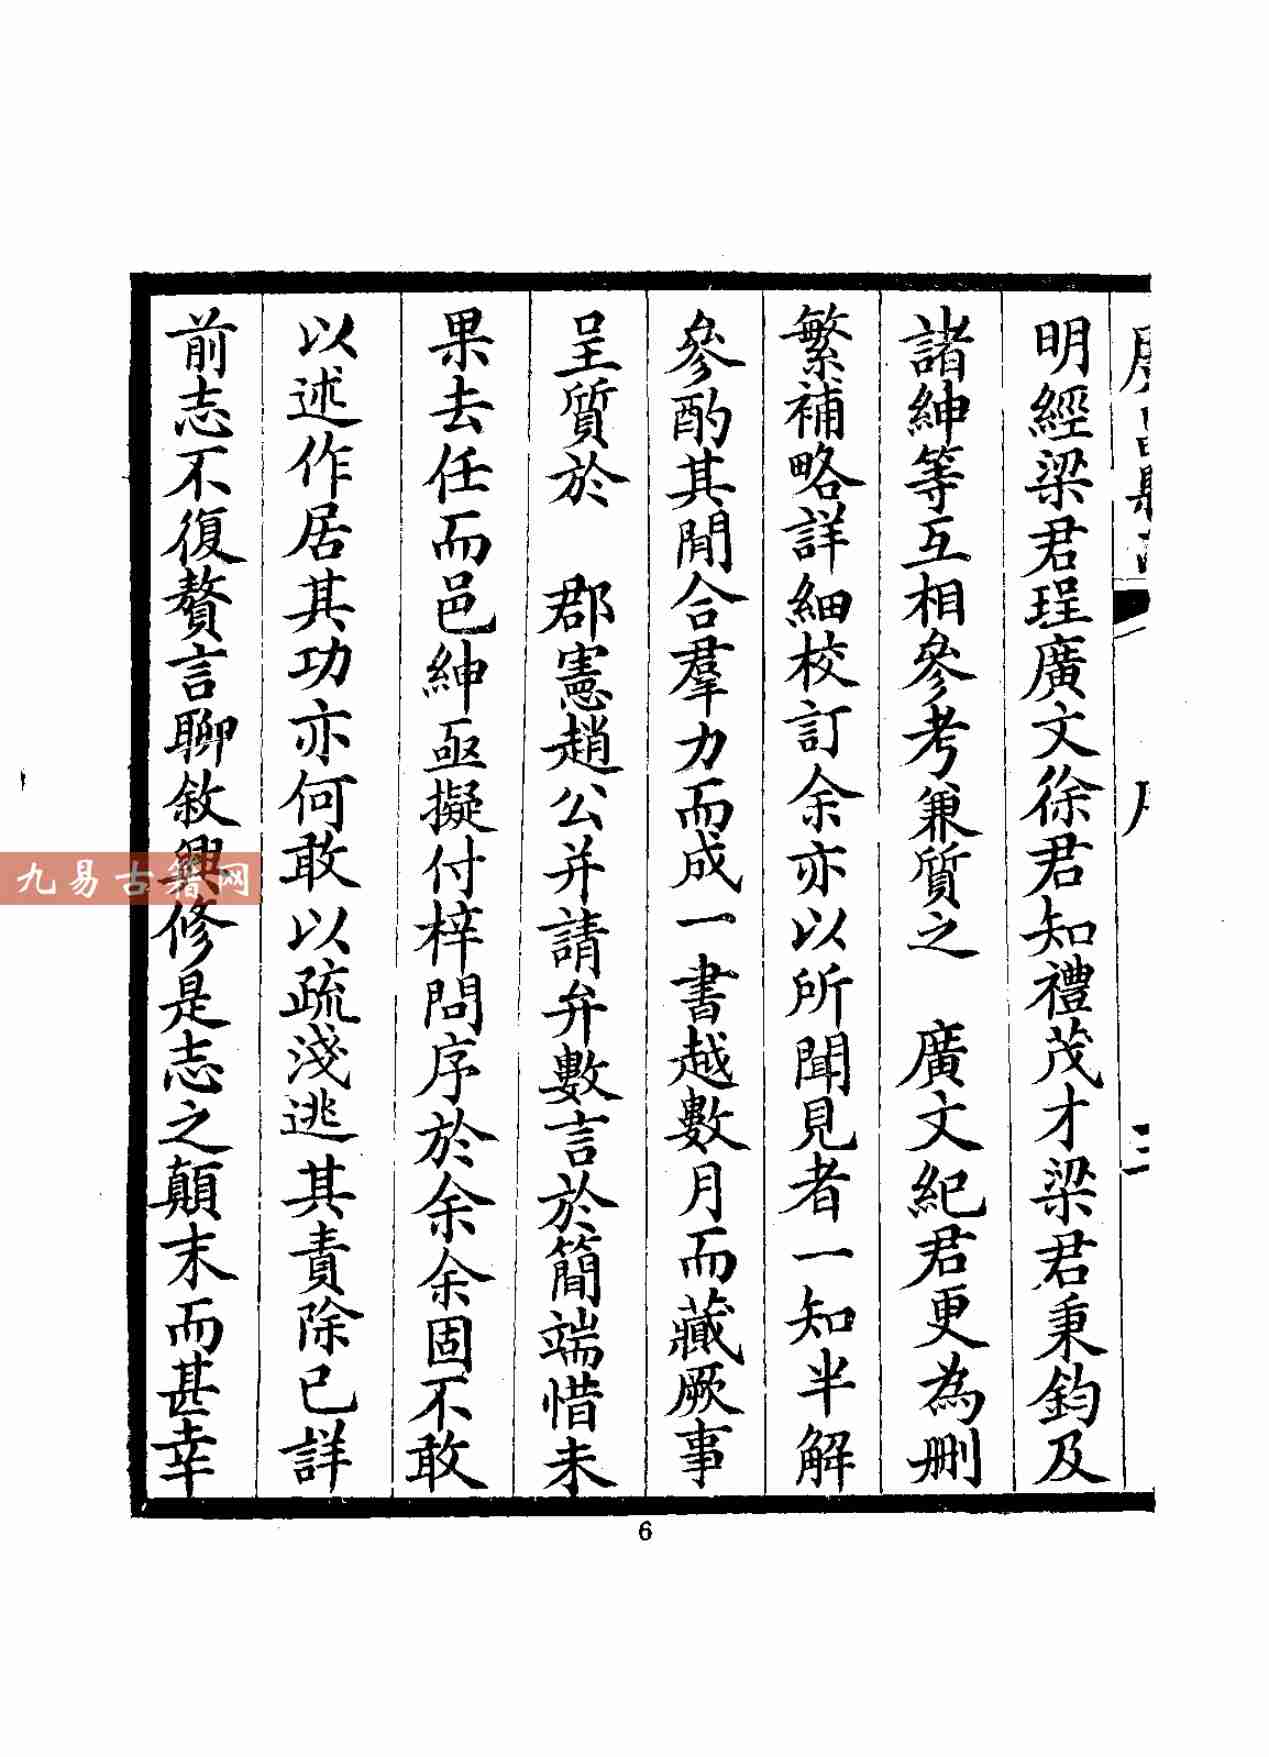 明經梁君珵廣文徐君知禮茂才梁君秉鈞及
諸紳等互相參考兼質之　廣文紀君更為刪
繁補略詳細校訂余亦以所聞見者一知半解
參酌其間合羣力而成一書越數月而蕆厥事
呈質於　郡憲趙公并請弁數言於簡端惜未
果去任而邑紳亟擬付梓問序於余余固不敢
以述作居其功亦何敢以疏淺逃其責除已詳
前志不復贅言聊敘興修是志之顛末而甚幸
九易古籍网
6